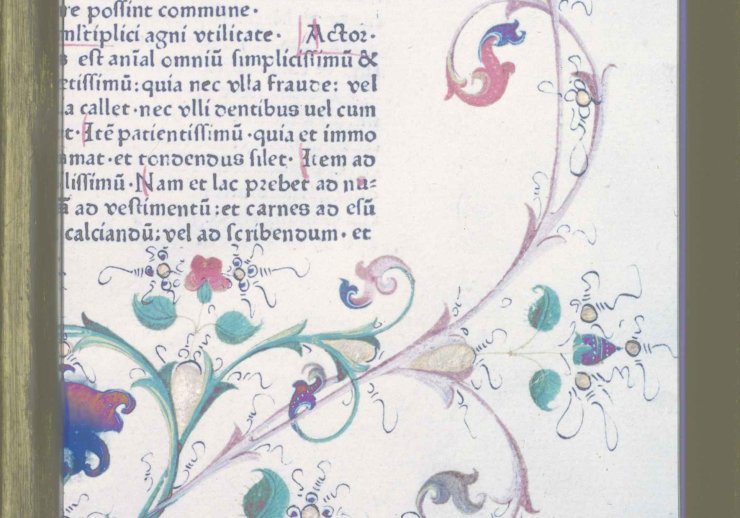 re possint commune·
mltiplici agni vtilitate· Actor·
s est anīal omniū simplicissimū &
etissimū: quia nec vlla fraude: vel
a callet· nec vlli dentibus uel cum
t· Itē patientissimū· quia et immo
mat· et tondendus silet· Item ad
lissimū· Nam et lac prebet ad nu-
ā ad vestimentū: et carnes ad esū
calciandū; vel ad scribendum· et